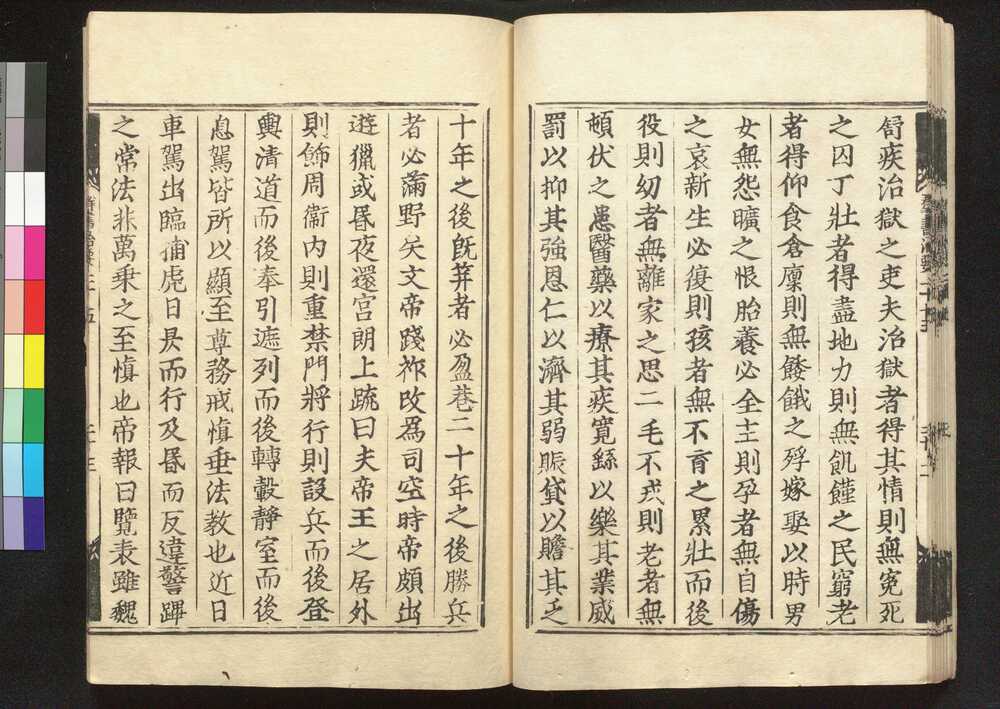 舒疾治獄之吏夫治獄者得其情則無寃死
之囚丁壯者得盡地力則無飢饉之民窮老
者得仰食倉廩則無餧餓之殍嫁娶以時男
女無怨曠之恨胎養必全主則孕者無自傷
之哀新生必復則孩者無不育之累壯而後
役則幼者無離家之思二毛不戎則老者無
頓伏之患醫藥以療其疾寬繇以樂其業威
罰以抑其強恩仁以濟其弱賑貸以贍其乏
十年之後旣筓者必盈巷二十年之後勝兵
者必滿野矣文帝踐祚改爲司空時帝頗出
遊獵或昬夜還宮朗上疏曰夫帝王之居外
則飾周衞內則重禁門將行則設兵而後登
輿清道而後奉引遮列而後轉轂靜室而後
息駕皆所以顯至尊務戒愼垂法教也近日
車駕出臨捕虎日昃而行及昬而反違警蹕
之常法非萬乘之至愼也帝報曰覽表雖魏
群書治要二十五